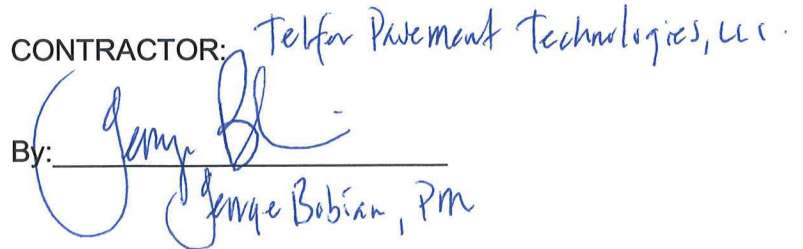 CONTRACTOR: Telfer Pavement Technologies, LLC.
By:
George Bobian, PM